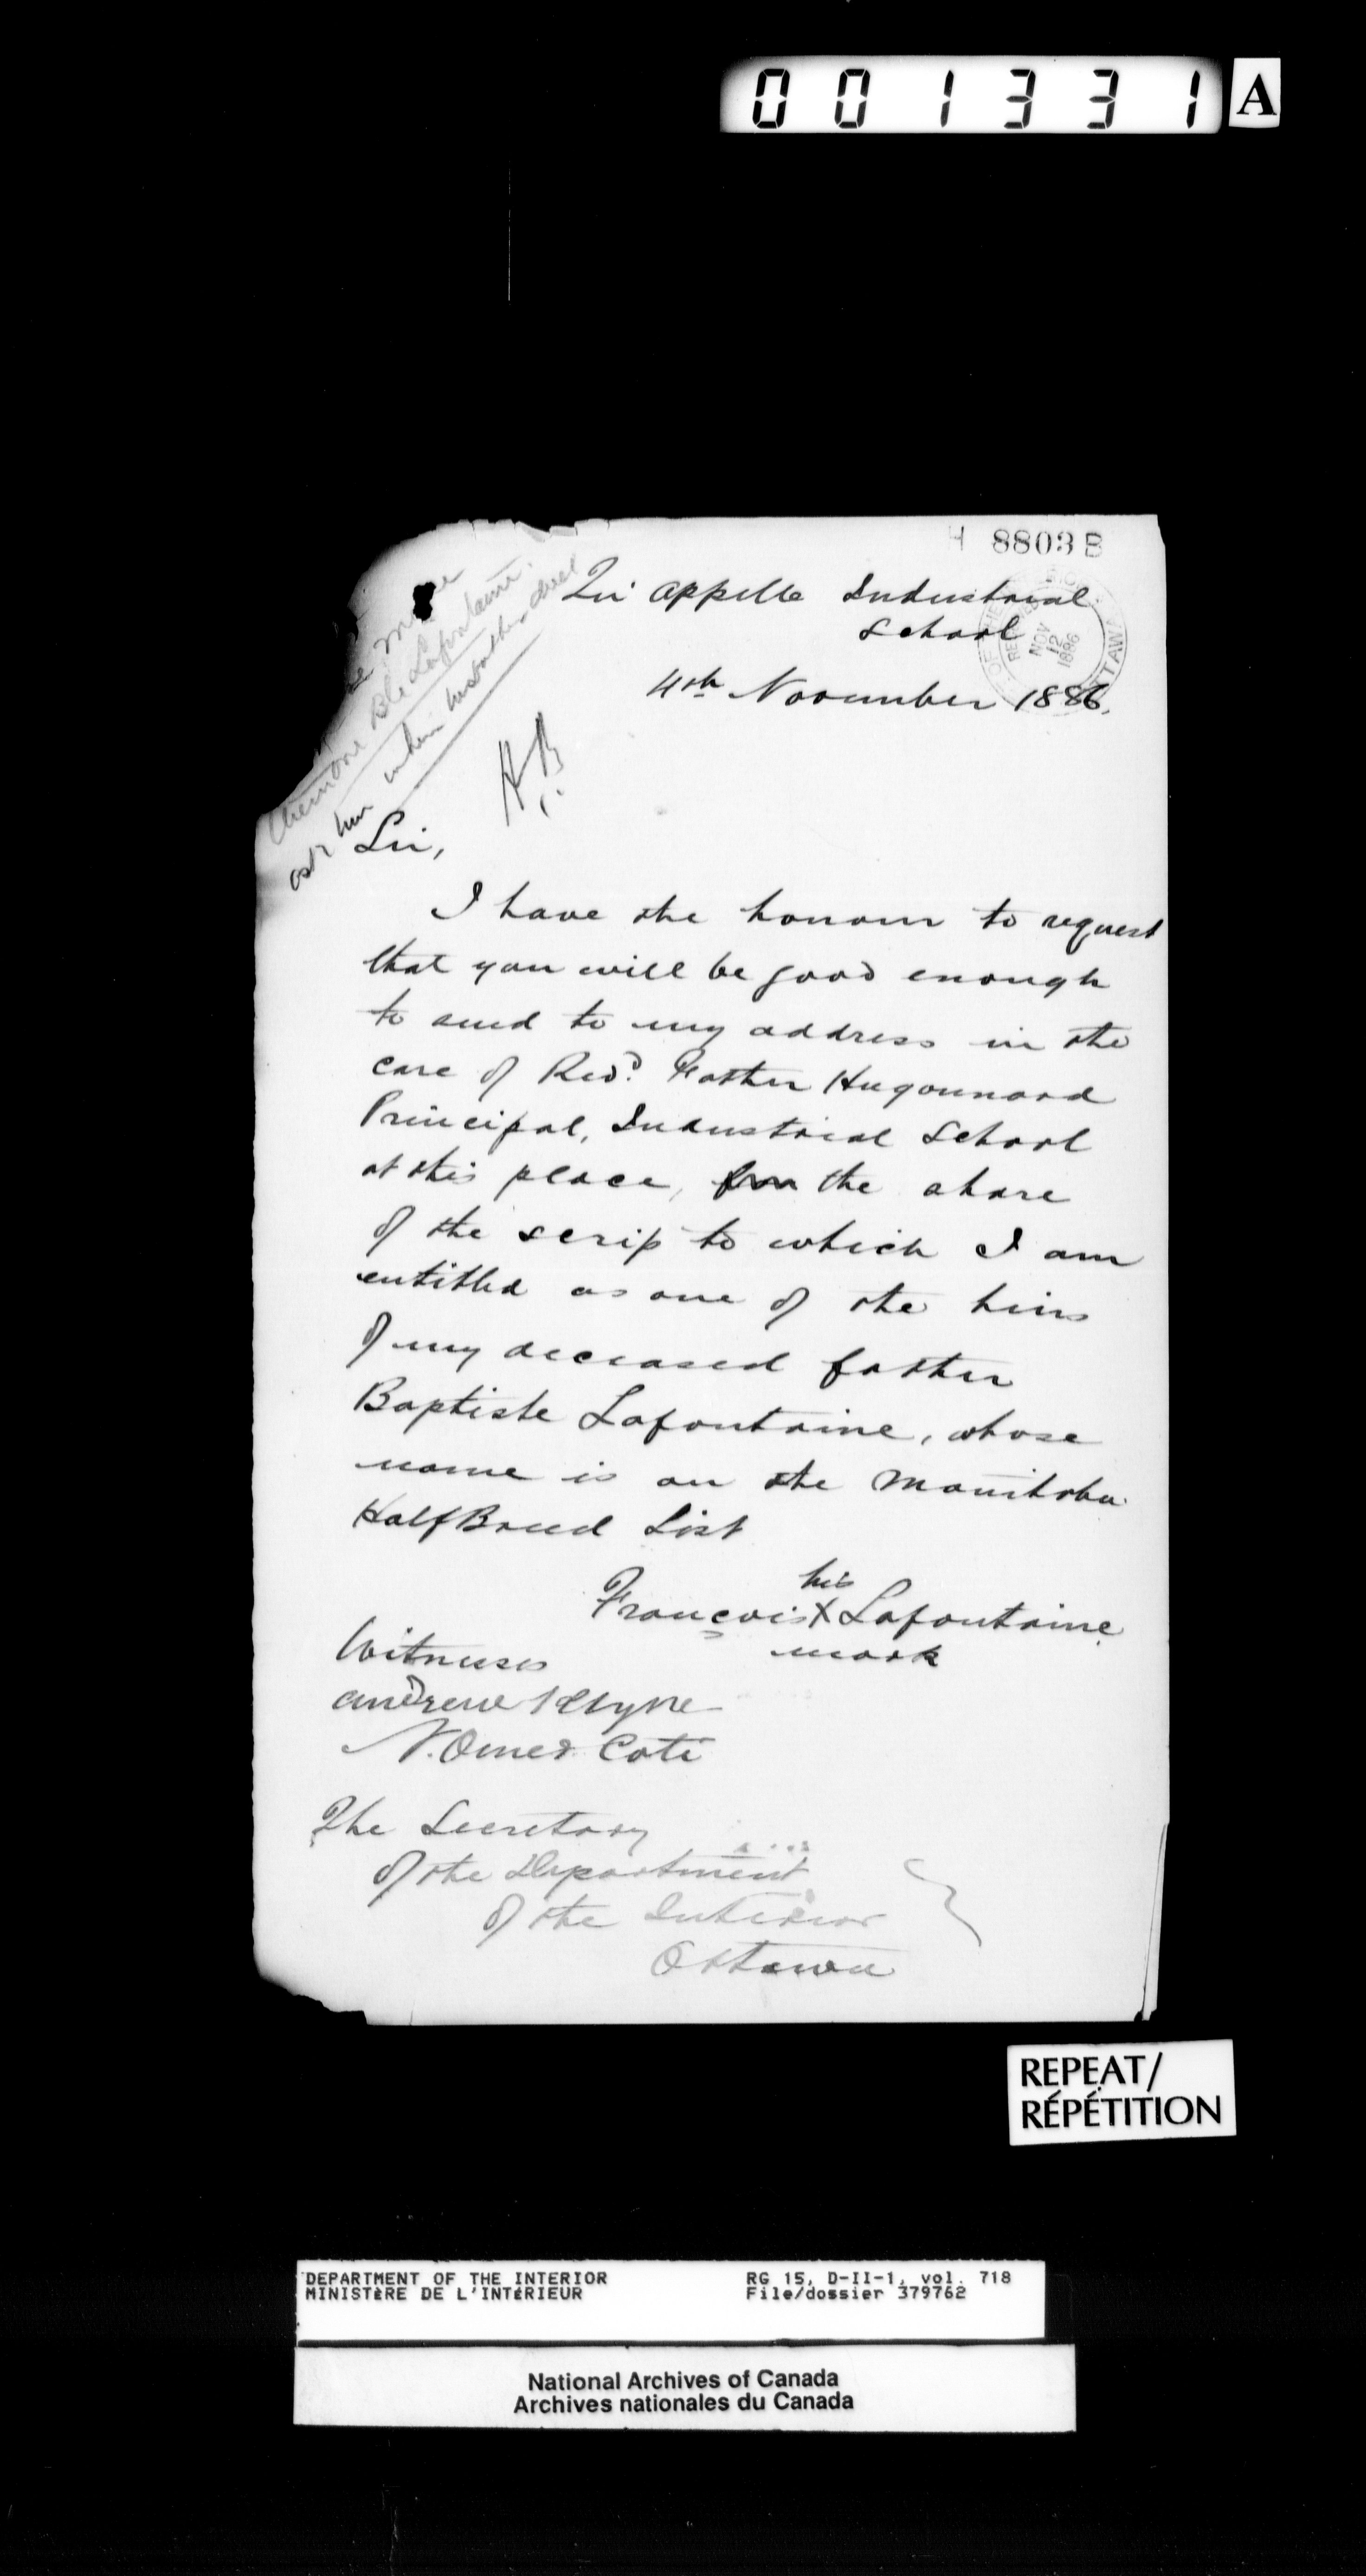 001331 A
H 8803 B
Qu'appelle Industrial
School
NOV
12
1886
OTTAWA
4th November 1886.
Lafontaine
ask him when his father died
H.B.
Sir,
I have the honour to request
that you will be good enough
to send to my address in the
care of Revd. Father Hugonnard
Principal, Industrial School
at this place, the share
of the scrip to which I am
entitled as one of the heirs
of my deceased father
Baptiste Lafontaine, whose
name is on the Manitoba
Half Breed List
his
François X Lafontaine
mark
Witnesses
Andrew
N. Omer Coté
The Secretary
of the Department
of the Interior
Ottawa
REPEAT/
RÉPÉTITION
DEPARTMENT OF THE INTERIOR RG 15, D-II-1, vol. 718
MINISTÈRE DE L'INTÉRIEUR File/dossier 379762
National Archives of Canada
Archives nationales du Canada